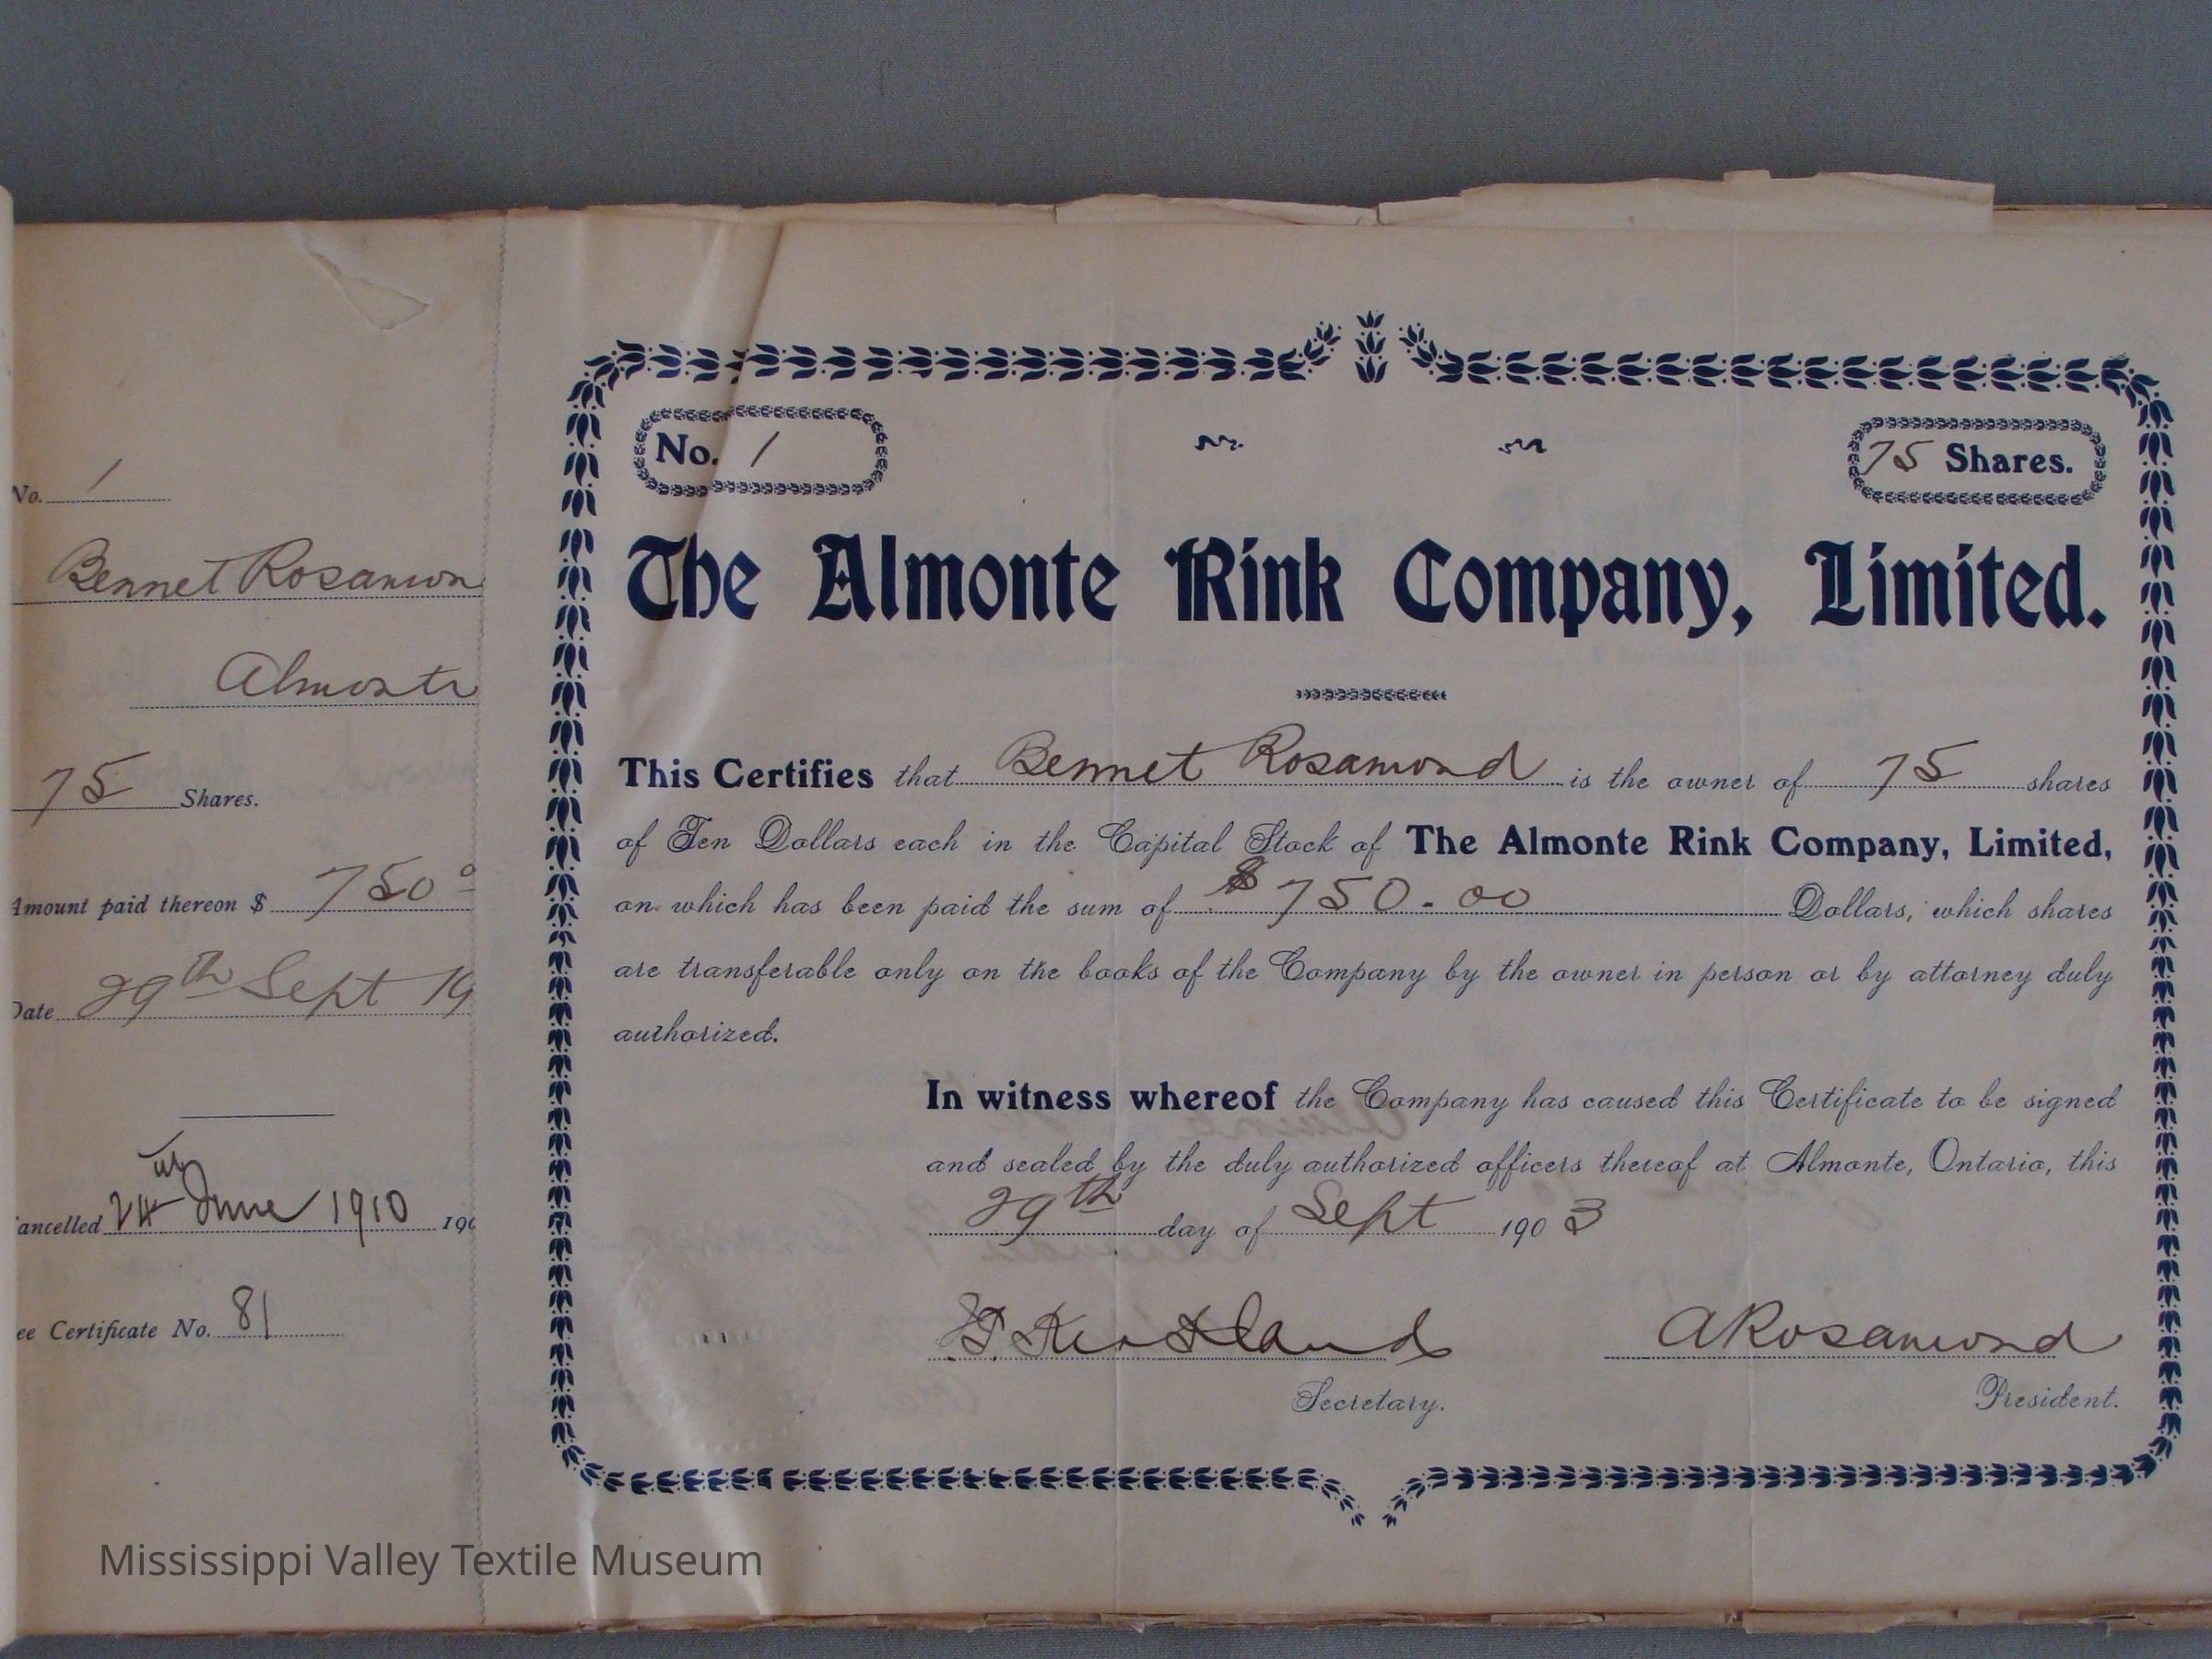 No. 1
Bennet Rosamon
Almonte
75 Shares.
Amount paid thereon $ 750 0
Date 29th Sept 19
ancelled 24th June 1910 190
ee Certificate No. 81
No. 1
75 Shares.
The Almonte Rink Company, Limited.
This Certifies that Bennet Rosamond is the owner of 75 shares
of Ten Dollars each in the Capital Stock of The Almonte Rink Company, Limited,
on which has been paid the sum of $750.00 Dollars, which shares
are transferable only on the books of the Company by the owner in person or by attorney duly
authorized.
In witness whereof the Company has caused this Certificate to be signed
and sealed by the duly authorized officers thereof at Almonte, Ontario, this
29th day of Sept 1903
ARosamond
Secretary.
President.
Mississippi Valley Textile Museum